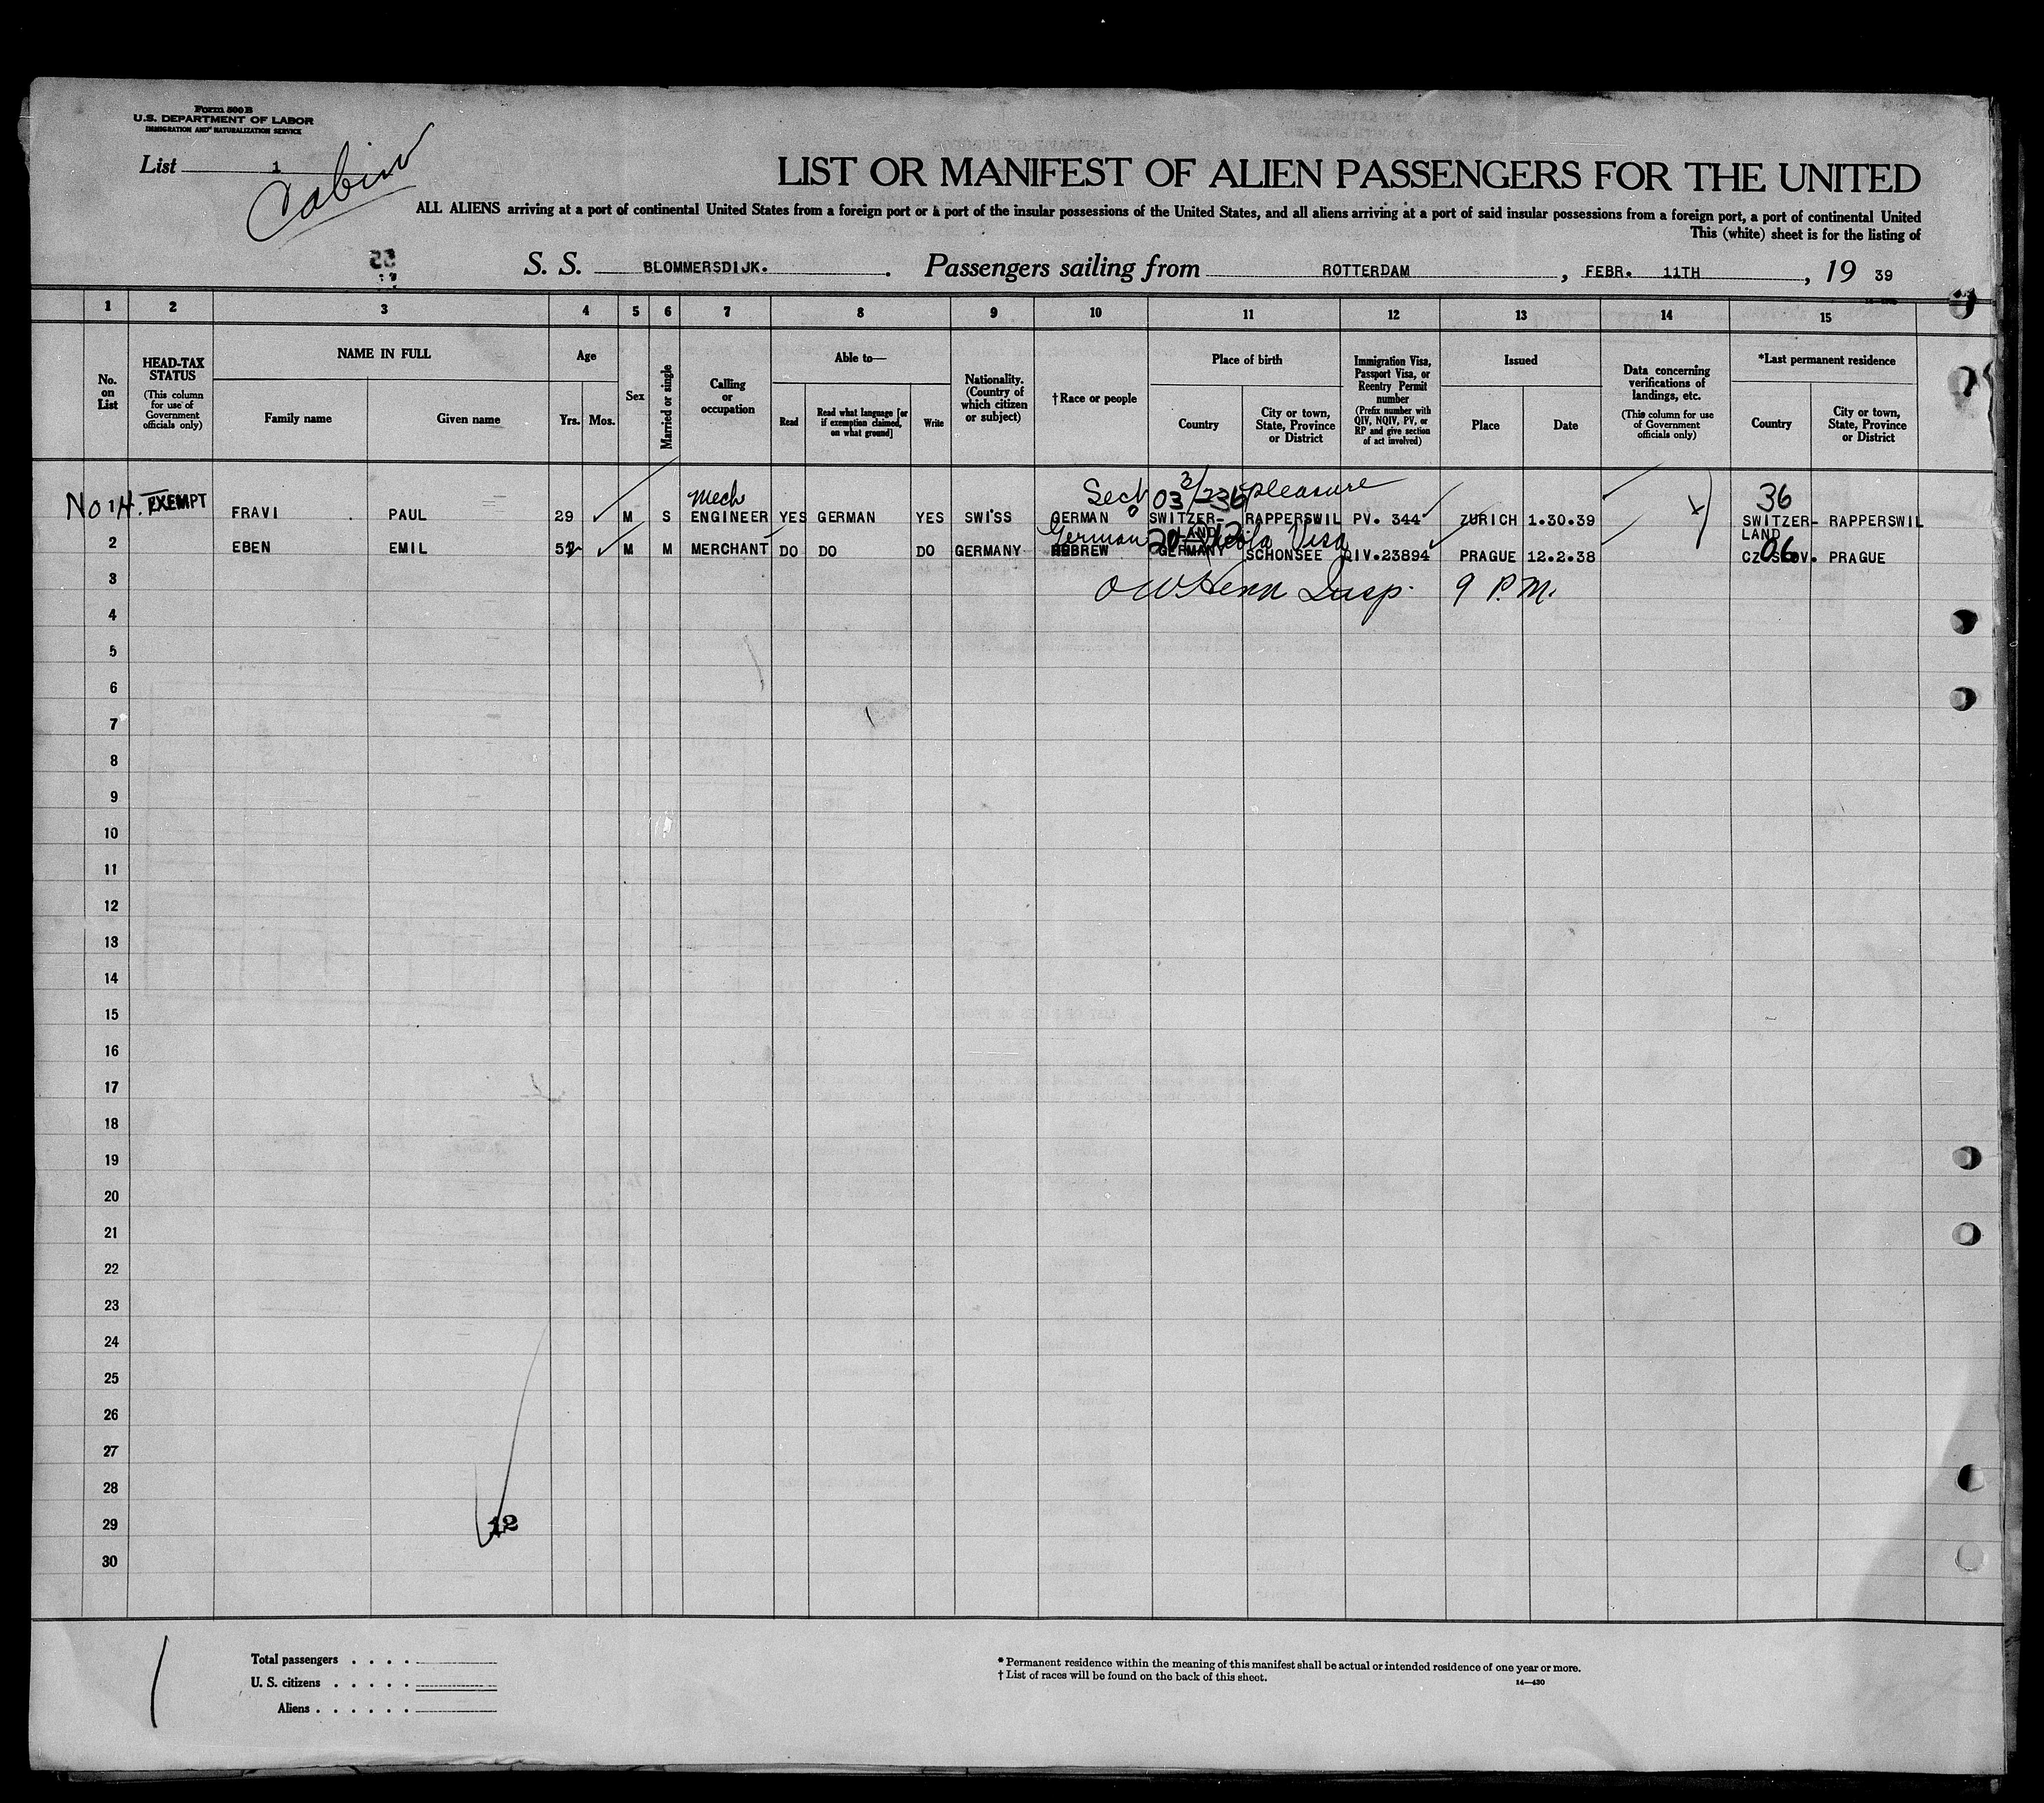 Form 500 B
U.S. DEPARTMENT OF LABOR
IMMIGRATION AND NATURALIZATION SERVICE
List 1
Cabin
LIST OR MANIFEST OF ALIEN PASSENGERS FOR THE UNITED
ALL ALIENS arriving at a port of continental United States from a foreign port or a port of the insular possessions of the United States, and all aliens arriving at a port of said insular possessions from a foreign port, a port of continental United
This (white) sheet is for the listing of
S. S. BLOMMERSDIJK. Passengers sailing from ROTTERDAM, FEBR. 11TH, 19 39
1 2 3 4 5 6 7 8 9 10 11 12 13 14 15
No. on List
HEAD-TAX STATUS
(This column for use of Government officials only)
NAME IN FULL
Family name
Given name
Age
Yrs. Mos.
Sex
Married or single
Calling or occupation
Able to—
Read
Read what language [or if exemption claimed, on what ground]
Write
Nationality. (Country of which citizen or subject)
†Race or people
Place of birth
Country
City or town, State, Province or District
Immigration Visa, Passport Visa, or Reentry Permit number
(Prefix number with QIV, NQIV, PV, or RP and give section of act involved)
Issued
Place
Date
Data concerning verifications of landings, etc.
(This column for use of Government officials only)
*Last permanent residence
Country
City or town, State, Province or District
Mech Sect 03 3/236 pleasure 36
1 EXEMPT FRAVI PAUL 29 M S ENGINEER YES GERMAN YES SWISS GERMAN SWITZER-LAND RAPPERSWIL PV. 344 ZURICH 1.30.39 SWITZER-LAND RAPPERSWIL
German Visa 06
2 EBEN EMIL 52 M M MERCHANT DO DO DO GERMANY HEBREW GERMANY SCHONSEE QIV.23894 PRAGUE 12.2.38 CZ.SLOV. PRAGUE
3 Insp. 9 P.M.
4
5
6
7
8
9
10
11
12
13
14
15
16
17
18
19
20
21
22
23
24
25
26
27
28
29 12
30
Total passengers . . . .
U. S. citizens . . . . .
Aliens . . . . . .
* Permanent residence within the meaning of this manifest shall be actual or intended residence of one year or more.
† List of races will be found on the back of this sheet.
14—430